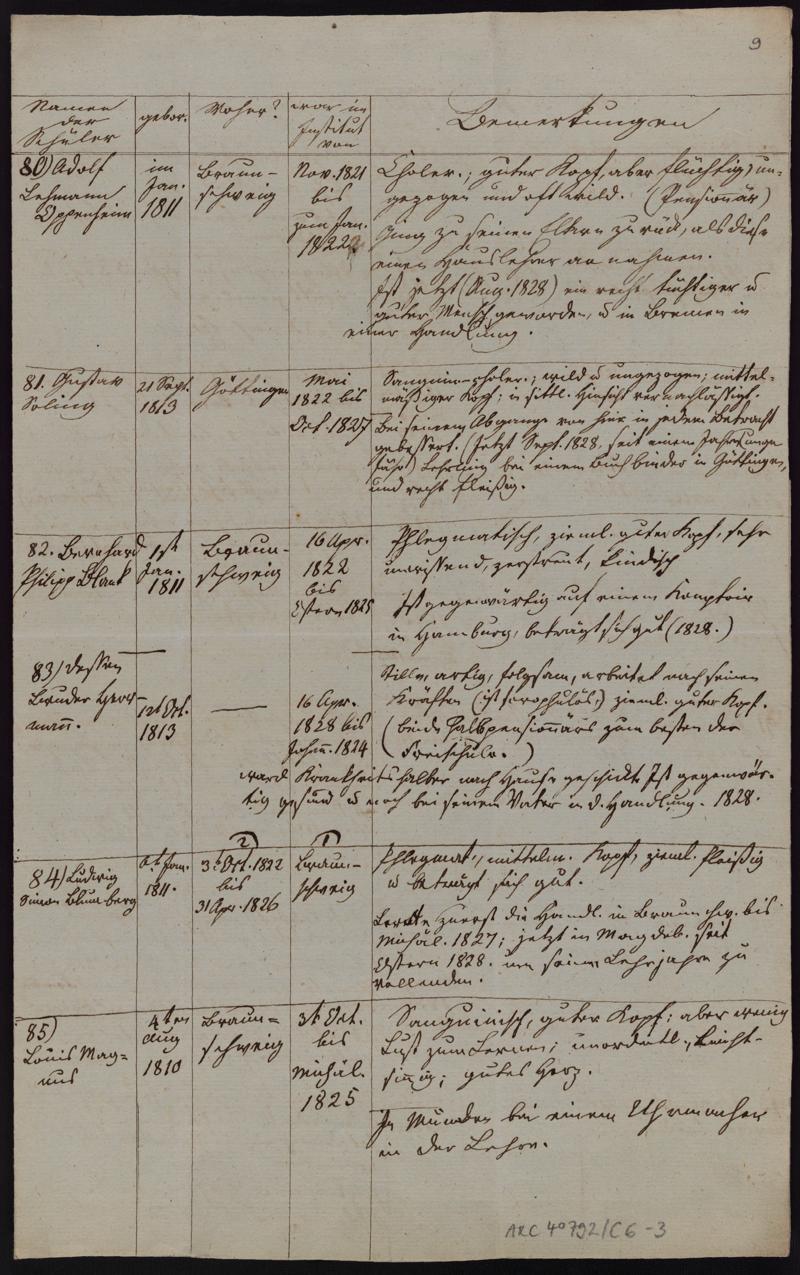 9
Namen
der
Schüler
gebor.
Woher?
war im
Institut
von
Bemerkungen
80) Adolf
Lehmann
Oppenheim
im
Jan.
1811
Braun-
schweig
Nov. 1821
bis
zum Jan.
1822
Choler.; guter Kopf, aber flüchtig, un-
gezogen und oft wild. (Pensionär)
Ging zu seinen Eltern zurück, als diese
einen Hauslehrer an nahmen.
Ist jetzt (Aug. 1828) ein recht tüchtiger u
guter Mensch geworden, u in Bremen in
einer Handlung.
81. Gustav
Soling
21 Sept.
1813
Göttingen
Mai
1822 bis
Oct. 1827
Sanguin-choler.; wild u ungezogen; mittel-
mäßiger Kopf; in sittl. Hinsicht vernachlässigt.
Bei seinem Abgange von hier in jedem Betracht
gebessert. (Jetzt Sept. 1828, seit einem Jahr unge
fähr) Lehrling bei einem Buchbinder in Göttingen,
und recht fleißig.
82. Bernhard
Philipp Blank
1st
Jan.
1811
Braun-
schweig
16 Apr.
1822
bis
Ostern 1825
Phlegmatisch, zieml. guter Kopf, sehr
unwissend, zerstreut, kindisch
Ist gegenwärtig auf einem Komptoir
in Hamburg, beträgt sich gut (1828.)
83) dessen
Bruder Herr-
mann.
12t Oct.
1813
16 Apr.
1828 bis
Johann. 1824
Stille, artig, folgsam, arbeitet nach seinen
Kräften (ist scrophulös;) zieml. guter Kopf.
(beide Halbpensionärs zum besten der
Freischule.)
ward Krankheits halber nach Hause geschickt. Ist gegenwär-
tig gesund u noch bei seinem Vater in d. Handlung. 1828.
2)
1)
84) Ludwig
Simon Blumberg
Jan.
1811.
3t Oct. 1822
bis
31 Apr. 1826
Braun-
schweig
Phlegmat., mittelm. Kopf, zieml. fleißig
u beträgt sich gut.
Lernte zuerst die Handl. in Braunschw. bis
Michäl. 1827; jetzt in Magdeb. seit
Ostern 1828. um seine Lehrjahre zu
vollenden.
85)
Louis Mag-
nus
4ten
Aug
1810
Braun-
schweig
3t Oct.
bis
Michäl.
1825
Sanguinisch, guter Kopf; aber wenig
Lust zum Lernen; unordentl., leicht-
sinnig; gutes Herz.
In Münden bei einem Uhrmacher
in der Lehre.
ARC 4° 792/C6-3